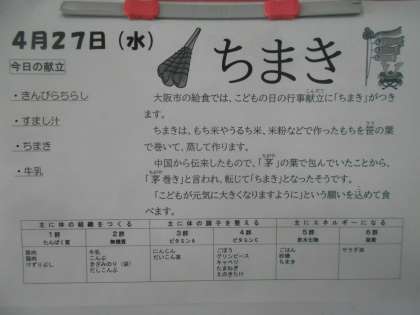 4月27日（水）
ちまき
今日の献立
・きんぴらちらし
・すまし汁
・ちまき
・牛乳
大阪市の給食では、こどもの日の行事献立に「ちまき」がつきます。
ちまきは、もち米やうるち米、米粉などで作ったもちを笹の葉で巻いて、蒸して作ります。
中国から伝来したもので、「茅」の葉で包んでいたことから、「茅巻き」と言われ、転じて「ちまき」となったそうです。
「こどもが元気に大きくなりますように」という願いを込めて食べます。
主に体の組織をつくる 主に体の調子を整える 主にエネルギーになる
1群 2群 3群 4群 5群 6群
たんぱく質 無機質 ビタミンA ビタミンC 炭水化物 脂肪
鶏肉 牛乳 にんじん ごぼう ごはん サラダ油
こんぶ だいこん葉 グリンピース 砂糖
けずりぶし きざみのり キャベツ ちまき
だしこんぶ たまねぎ
えのきたけ